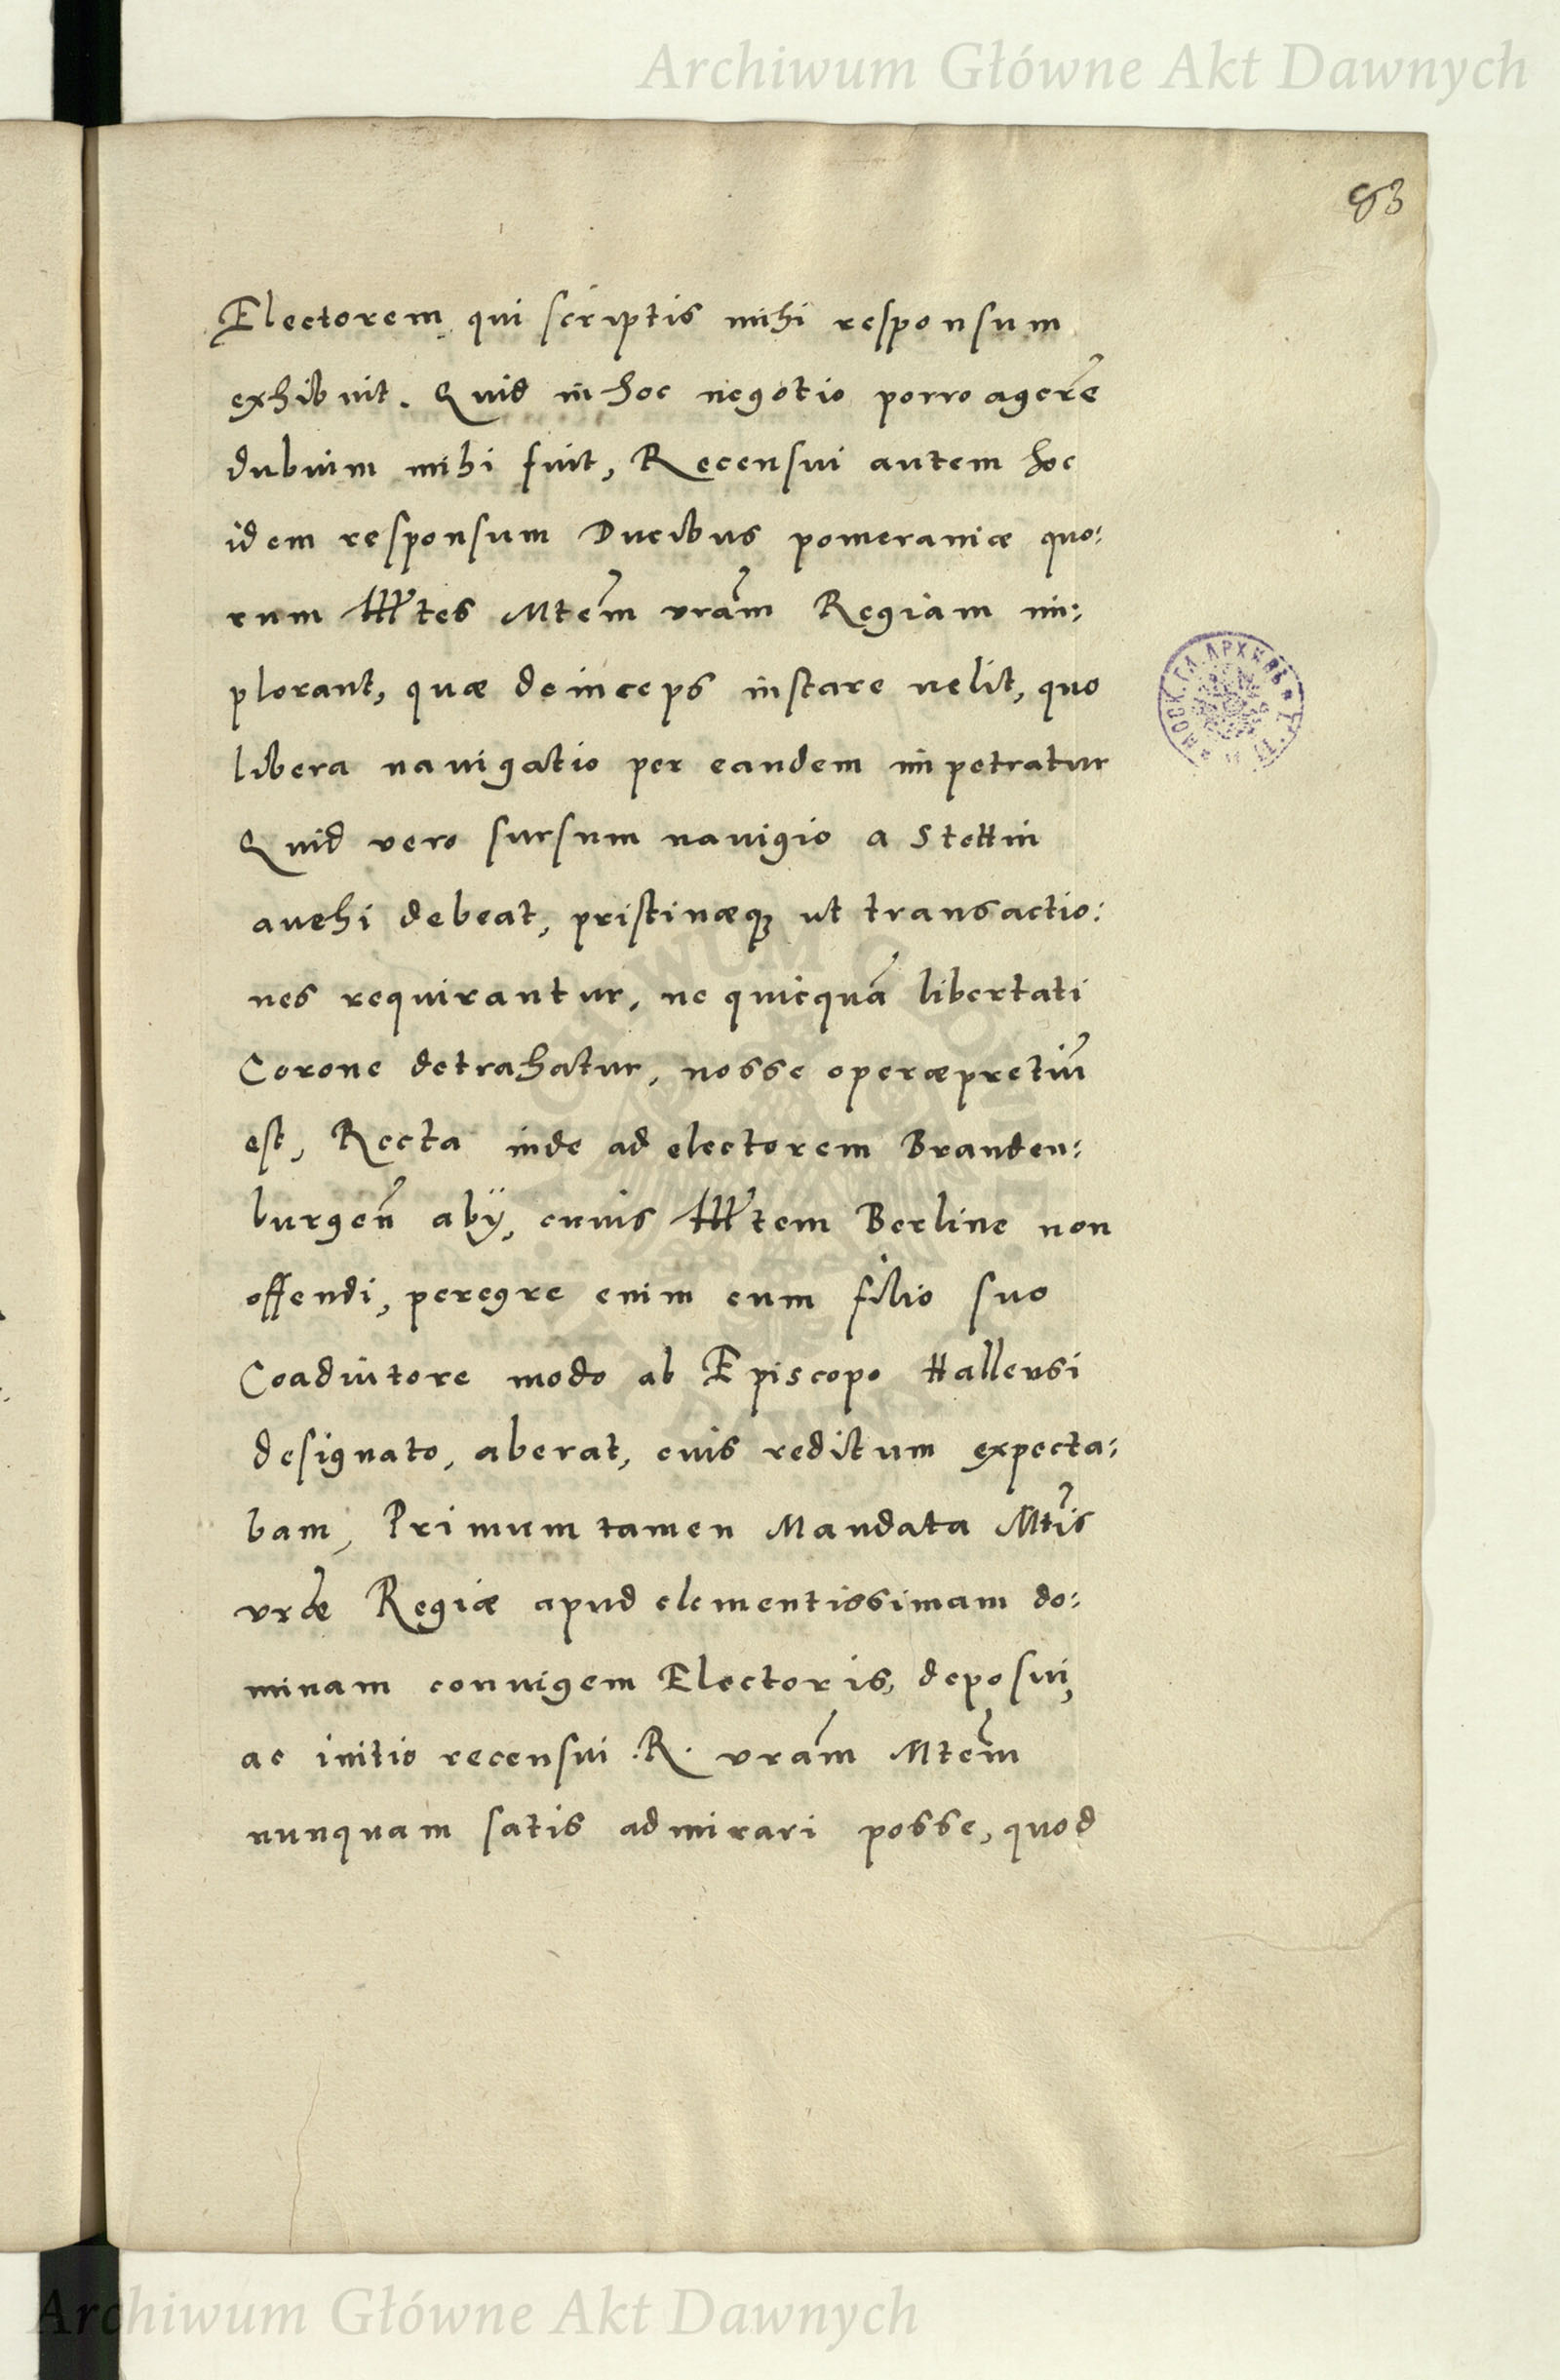 Archiwum Główne Akt Dawnych
83
Electorem qui scriptis mihi responsum
exhibuit. Quid in hoc negotio porro agere
dubium mihi fuit, Recensui autem hoc
idem responsum Ducibus pomeraniæ quo:
rum Illtes Mtem vram Regiam im:
plorant, quæ deinceps instare uelit, quo
libera nauigatio per eandem impetratur
Quid vero sursum nauigio a Stettin
auehi debeat, pristinæq; ut transactio:
nes requirantur, ne quicquã libertati
Corone detrahatur, nosse operæpretiũ
est, Recta inde ad electorem Branden:
burgeñ abÿ, cuius Illtem Berline non
offendi, peregre enim cum filio suo
Coadiutore modo ab Episcopo Hallensi
designato, aberat, cuis reditum expecta:
bam, Primum tamen Mandata Mtis
vræ Regiæ apud clementissimam do:
minam coniugem Electoris, deposui,
ac initio recensui .R. vram Mtem
nunquam satis admirari posse, quod
МОСК. ГЛ. АРХИВЪ
Archiwum Główne Akt Dawnych